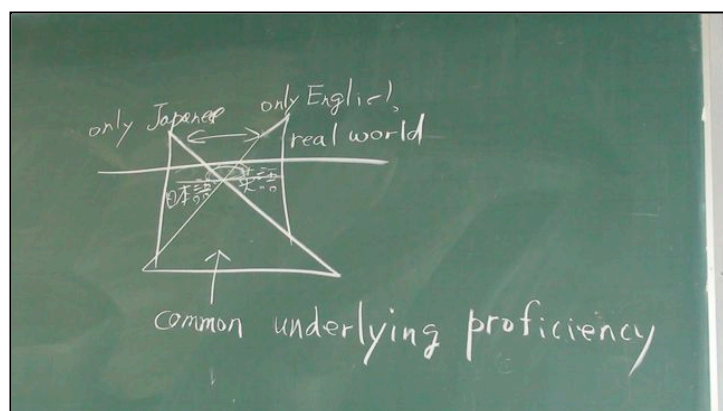 only Japanese
only English
real world
日本語 英語
common underlying proficiency